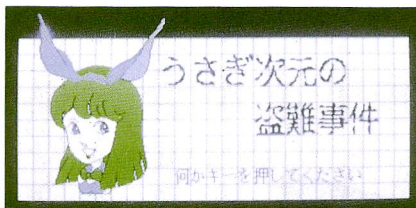 うさぎ次元の
盗難事件
何かキーを押してください